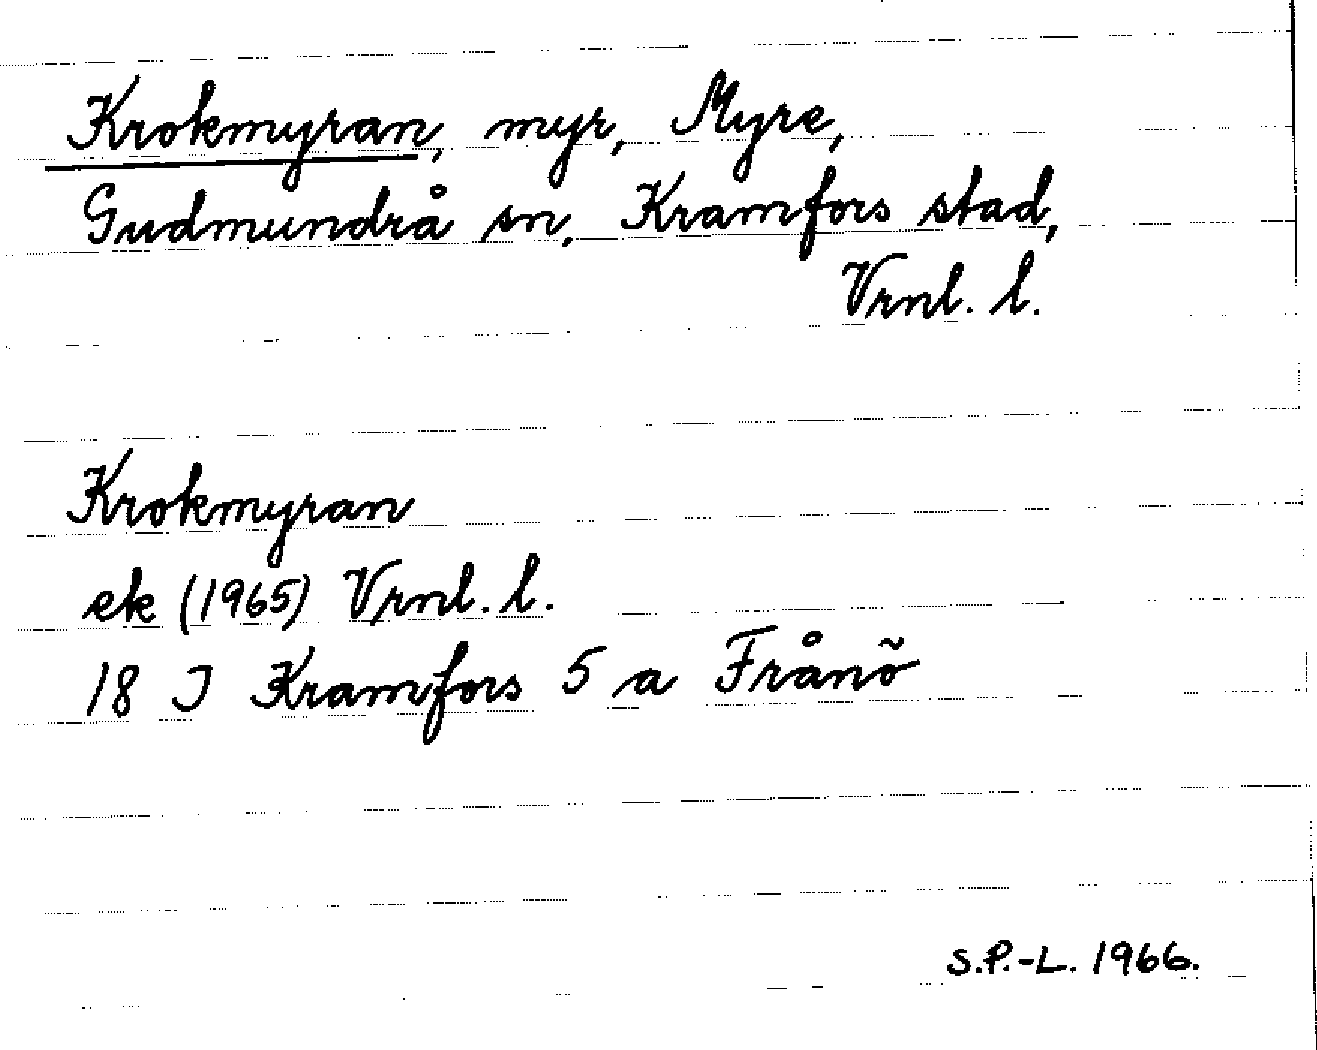 Krokmyran, myr, Myre,
Gudmundrå sn, Kramfors stad,
Vrnl. l.
Krokmyran
ek (1965) Vrnl. l.
18 I Kramfors 5 a Frånö
S.P.-L. 1966.